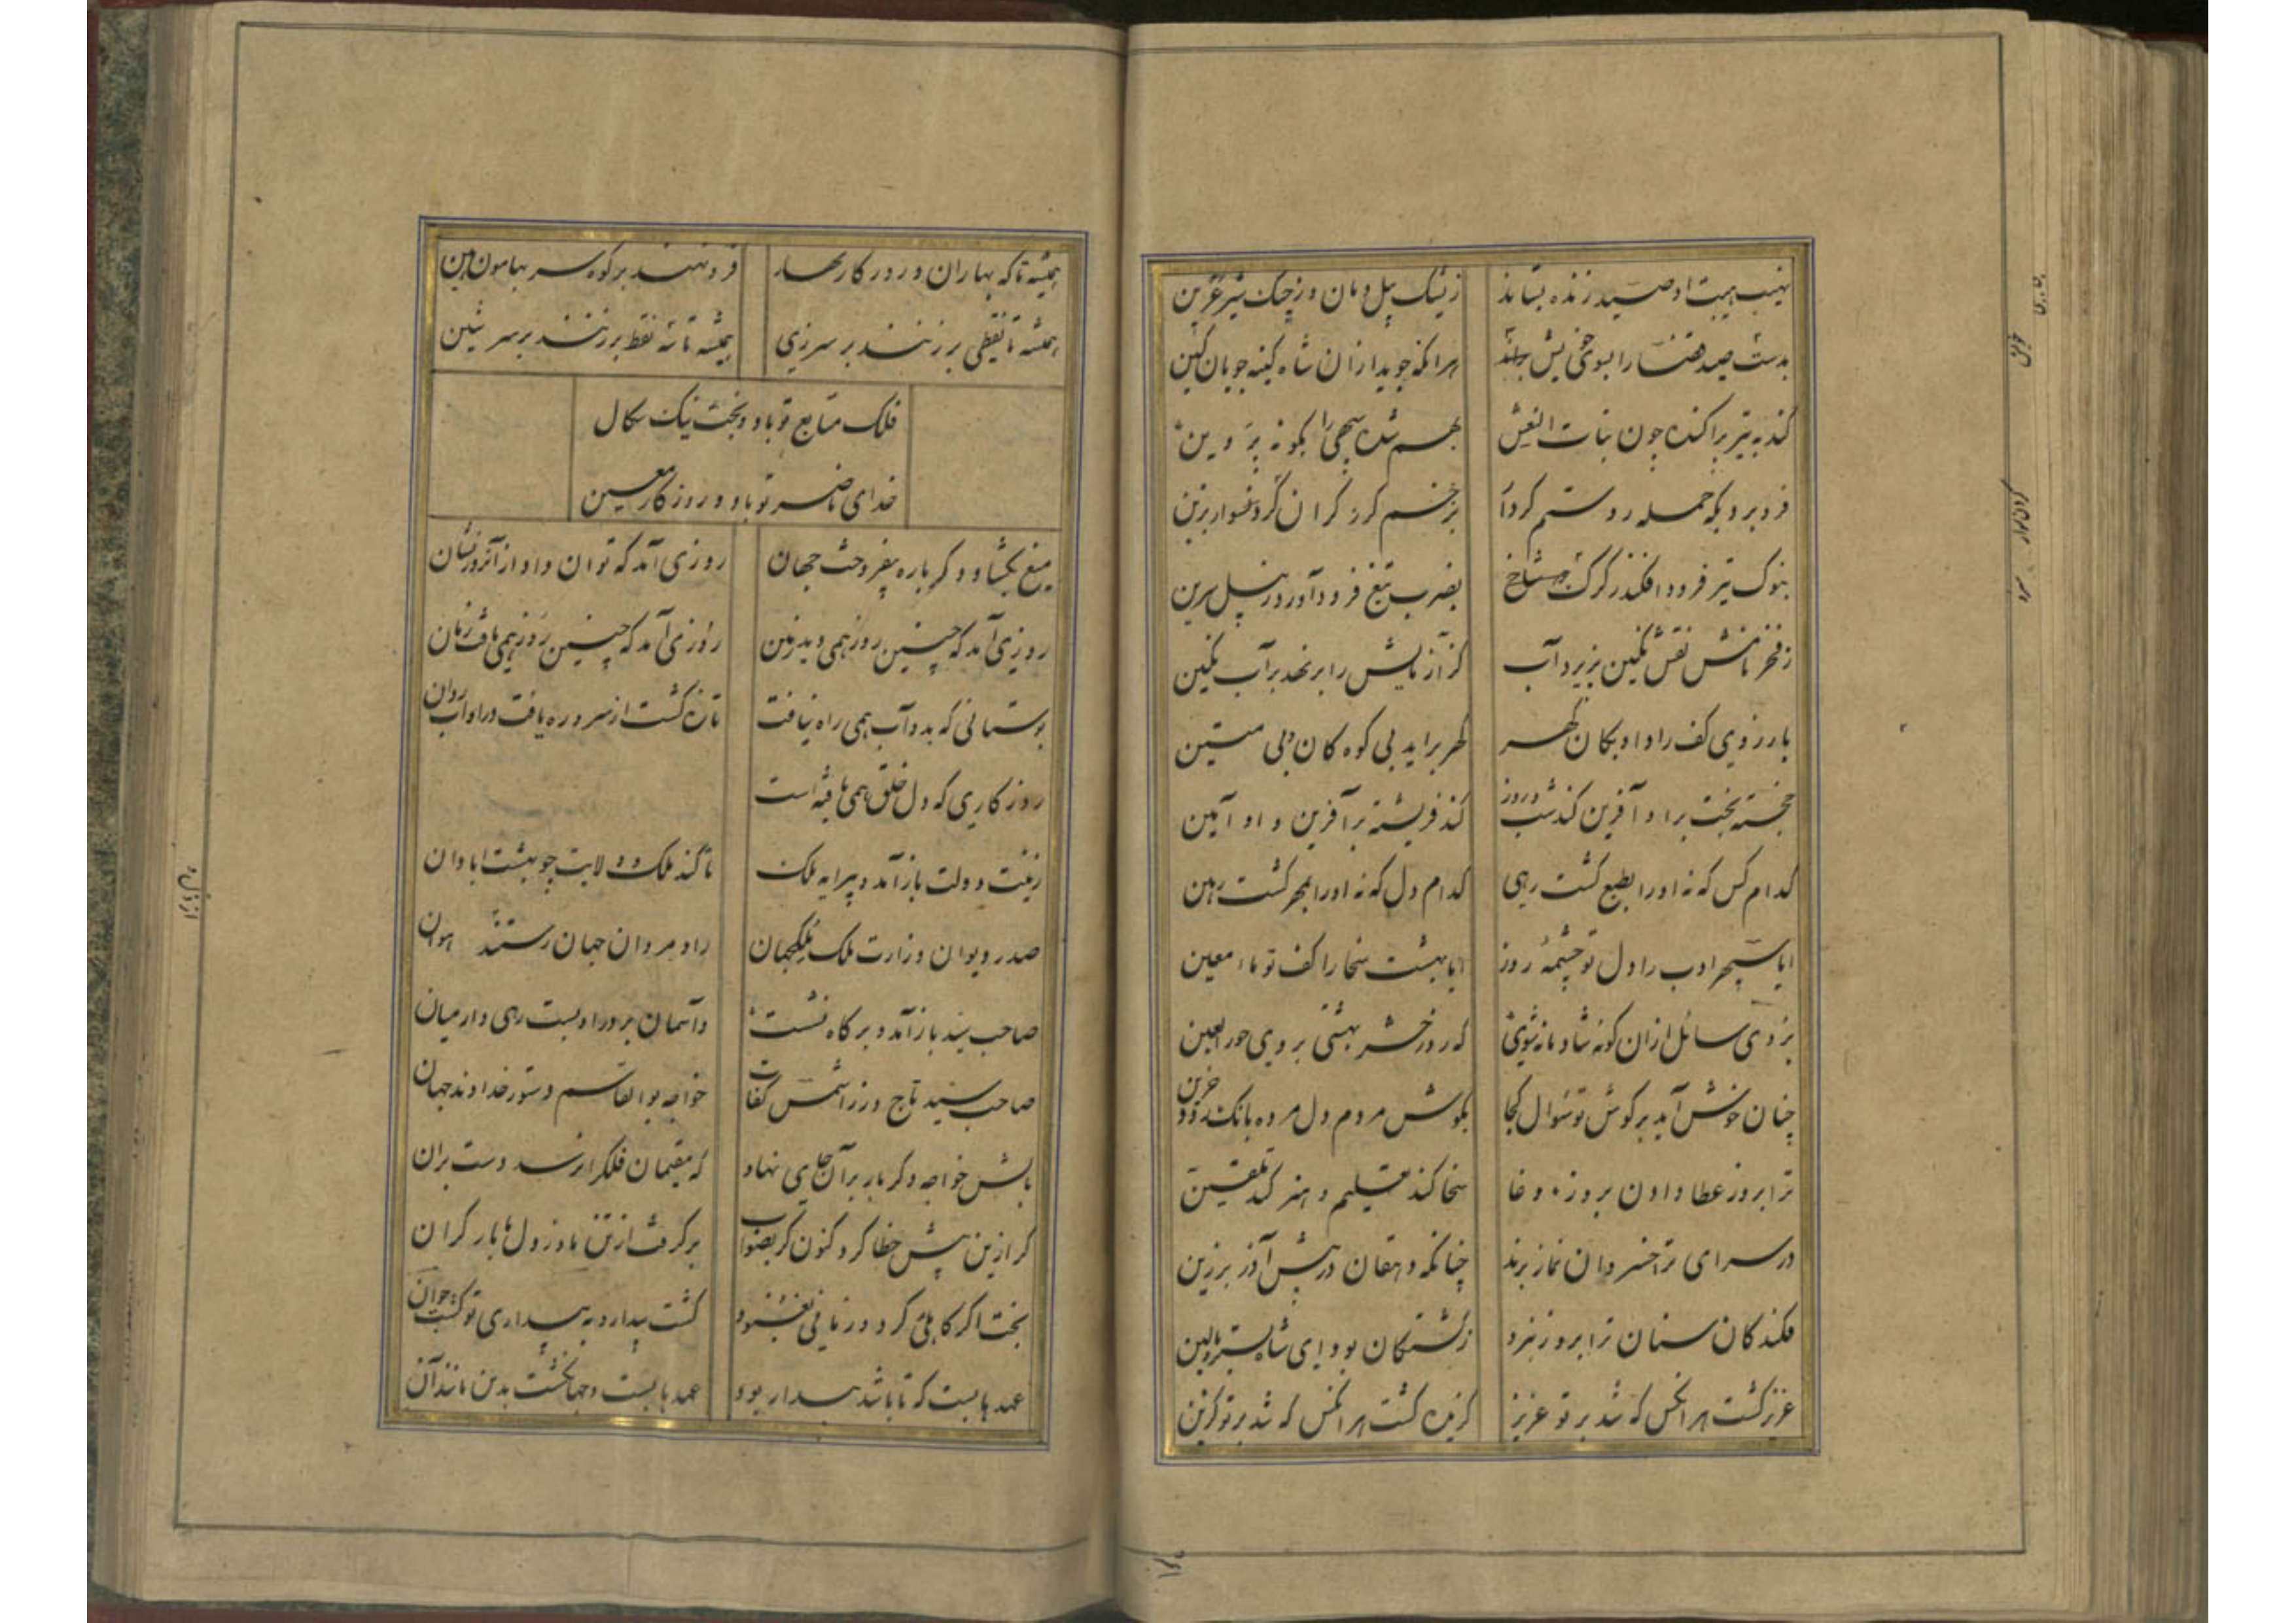 نهیب هیبت او صید زنده بستاند
زیشک پیل دمان وز چنک شیر عرین
بدست صید
را بسوی خویش
هر انکه جوید ازان شاه کینه جویان کین
کند به تیر پراکنده چون بنات النعش
بهم شده سپهی را بکونه پروین
فرو برد بکه حمله
بزخم کرز کران کرد
بنوک تیر فرود افکند ز کرک
بضرب تیغ فرود آورد ز پیل سرین
ز فخر نامش نقش نکین پذیرد آب
کر آزمایش را بر نهد بر آب نکین
بارزوی کف راد او بکان کهر
کهر براید بی کوه کان و بی میتین
خجسته بخت برا و آفرین کند شب و روز
کند فریشته بر آفرین او آمین
کدام کس که نه او را بطبع کشت رهی
کدام دل که نه او را بمهر کشت رهین
ایا سپهر ادب را دل تو چشمه روز
ایا بهشت سخا را کف تو ماء معین
بروی سائل ازان کونه شادمانه شوی
که روز حشر بهشتی بروی حور العین
چنان خوش آید بر کوش تو سوال کجا
بکوش مردم دل مرده بانک رود حزین
ترا بروز عطا دادن بروز وغا
سخا کند تعلیم و هنر کند تلقین
در سرای ترا خسروان نماز برند
چنانکه دهقان در پیش آذر برزین
فکندکان سنان ترا بروز نبرد
ز کشتکان بود ای شاه بستر و بالین
عزیز کشت هر انکس که شد بر تو عزیز
کزین کشت هر انکس که شد بر تو کزین
همیشه تا که بهاران و روزکار بهار
فرو نهند بر کوه سر بهامون هین
همیشه تا نقطی بر زنند بر سر زی
همیشه تا سه نقط بر زنند بر سر شین
فلک متابع تو باد و بخت نیک سکال
خدای ناصر تو باد و روزکار معین
میغ بکشاد و دکر باره بیفروخت جهان
روزی آمد که توان داد از آنروز نشان
روزی آمد که چنین روز همی دید زمین
روزی آمد که چنین روز همی یافت زمان
بوستانی که بدو آب همی راه نیافت
تازه کشت از سر و ره یافت در او آب روان
روزکاری که دل خلق همی تافته است
زینت دولت باز آمد و پیرایه ملک
تا کند ملک و ولایت چو بهشت ابادان
صدر دیوان وزارت ملک ملکجهان
راد مردان جهان رستند
صاحب سید باز آمد و بر کاه نشست
و آسمان بر در او بست رهی وار میان
صاحب سید تاج وزرا شمس کفات
خواجه بو القاسم دستور خداوند جهان
بالش خواجه دکر بار بر آن جای نهاد
که مقیمان فلکرا نرسد دست بران
کر ازین پیش خطا کرد کنون کرد بصواب
بر کرفت از تن ما وز دل ما بار کران
بخت اکر کاهلئی کرد و زمانی بغنود
کشت بیدار و به بیداری تو کشت جوان
عهد بابست که تا باشد بیدار بود
عهد بابست و جهانکشت بدین مانند آن